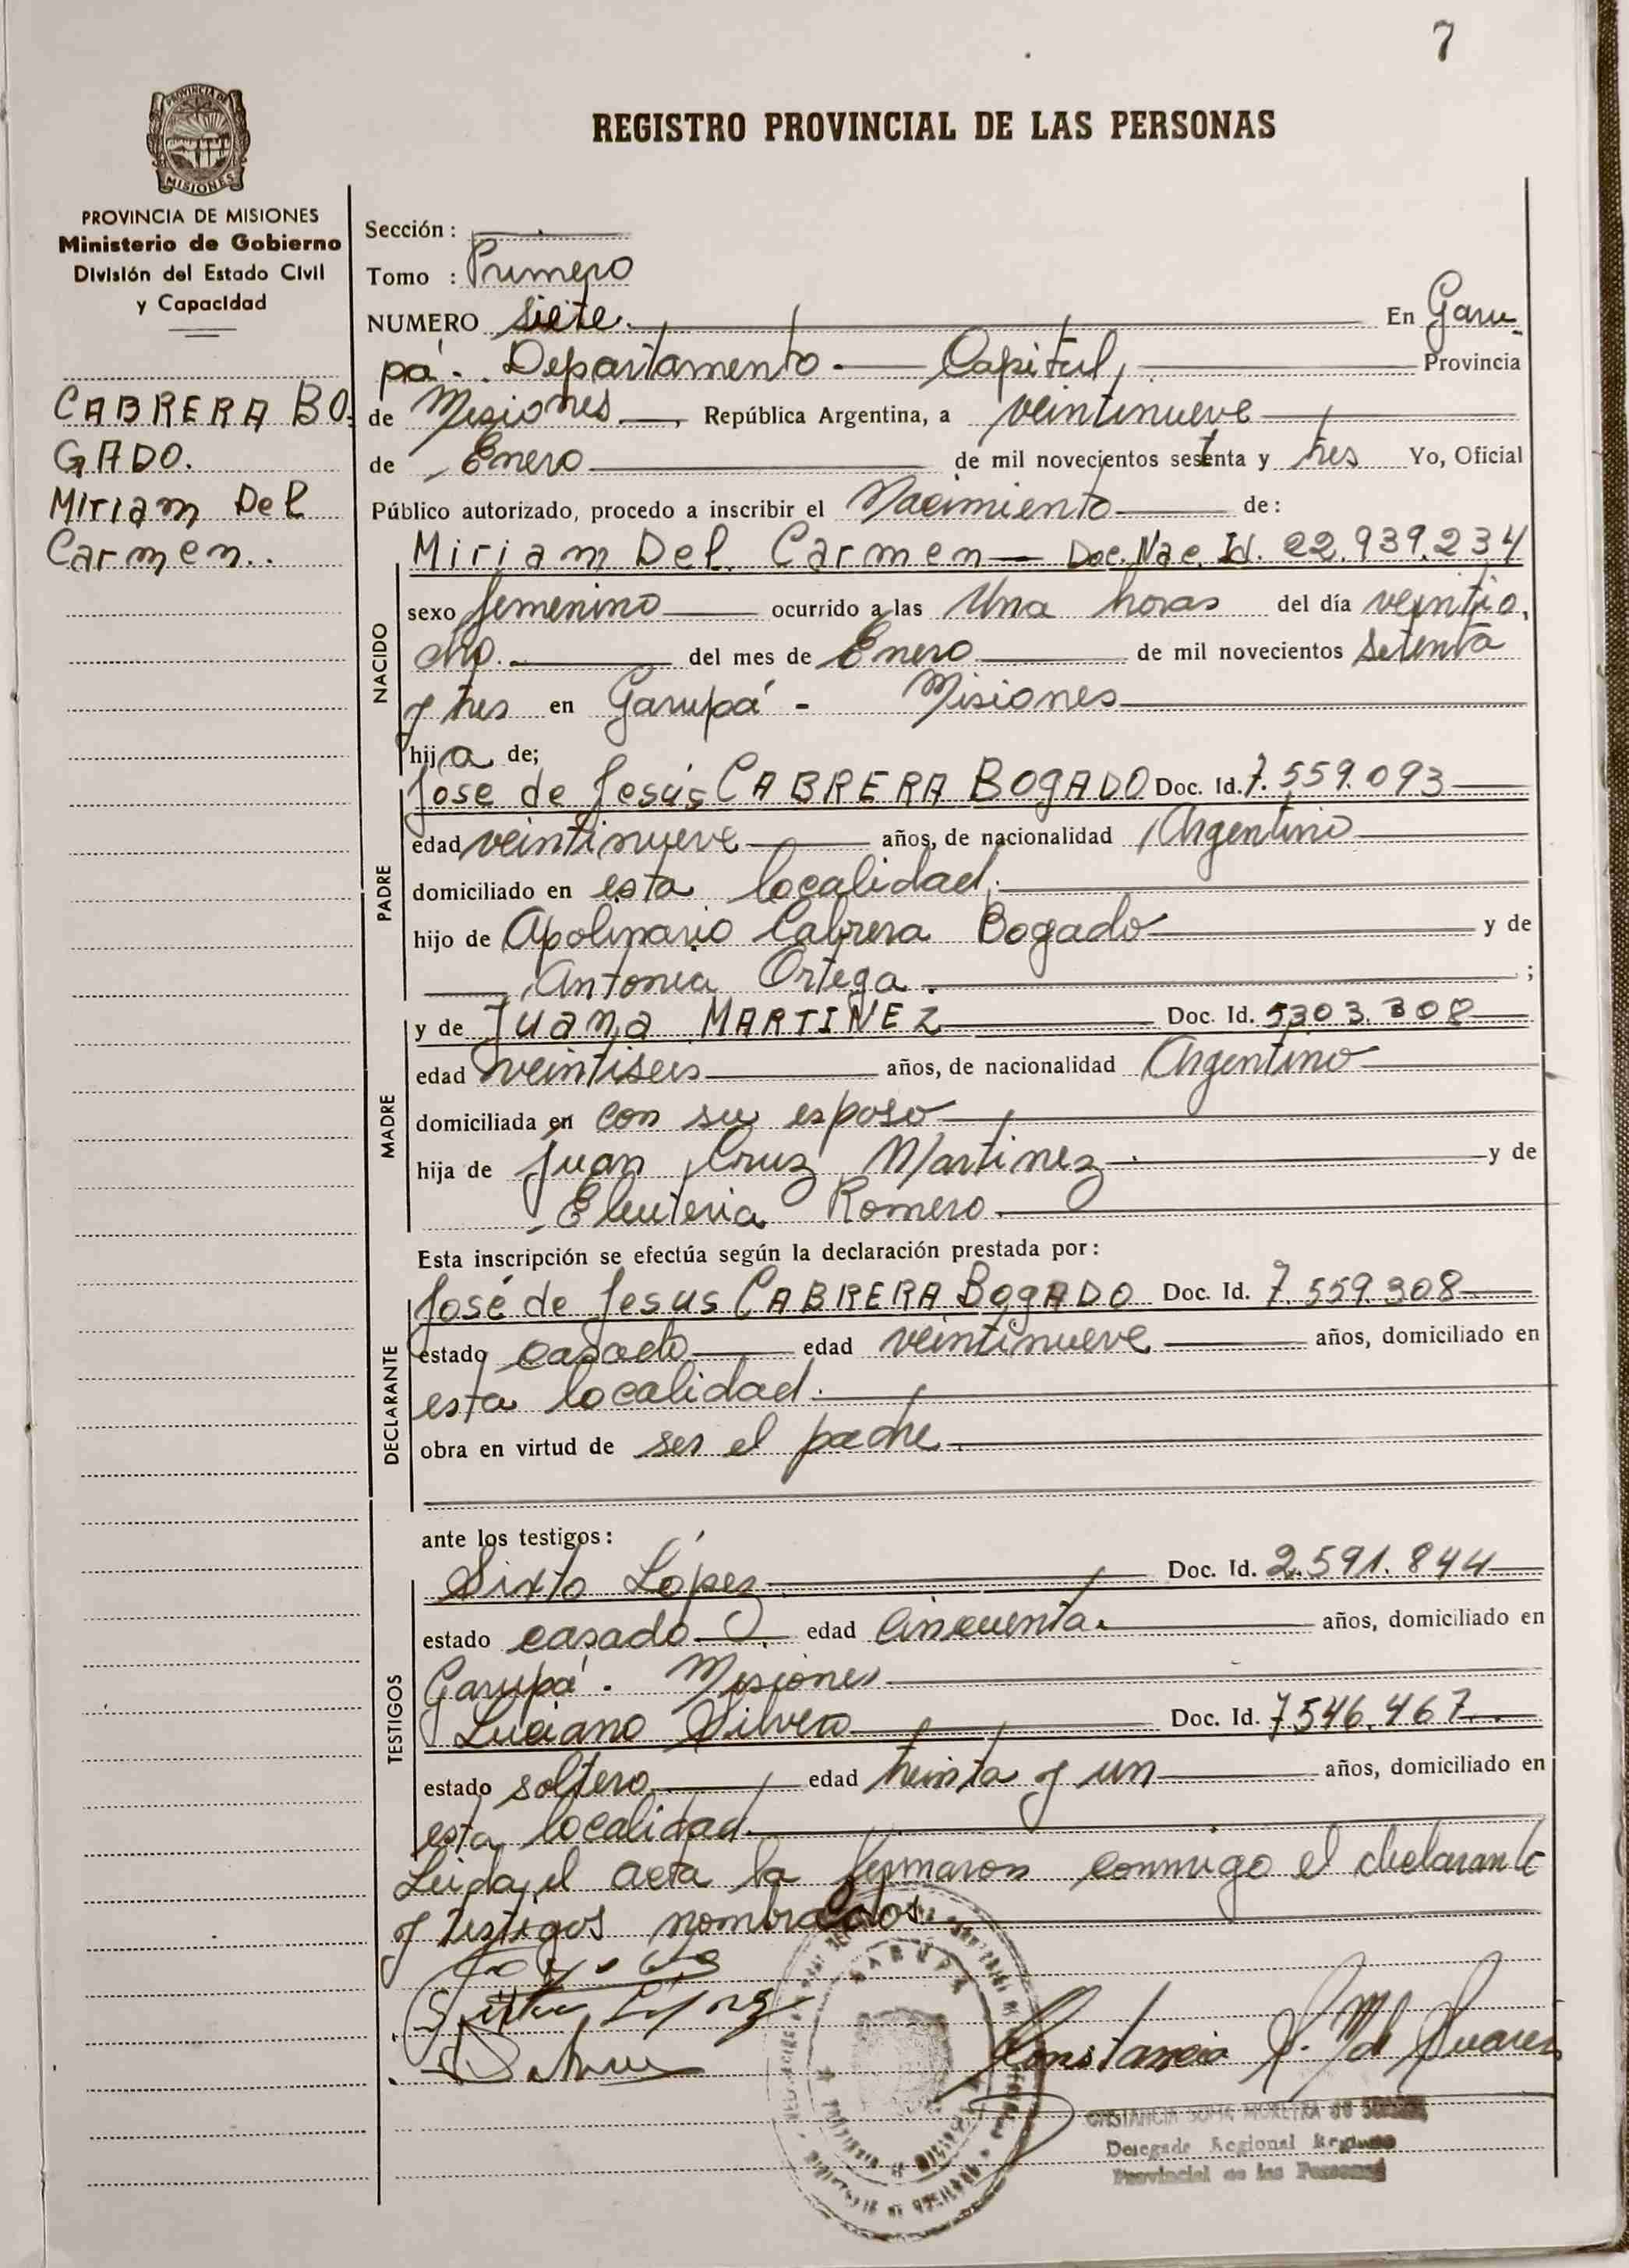 7
REGISTRO PROVINCIAL DE LAS PERSONAS
PROVINCIA DE MISIONES
MISIONES
PROVINCIA DE MISIONES
Ministerio de Gobierno
División del Estado Civil
y Capacidad
CABRERA BO-
GADO.
Miriam Del
Carmen..
Sección :
Tomo : Primero
NUMERO siete. En Garu-
pá. Departamento - Capital, Provincia
de Misiones, República Argentina, a veintinueve
de Enero de mil novecientos setenta y tres Yo, Oficial
Público autorizado, procedo a inscribir el Nacimiento de:
NACIDO
Miriam Del Carmen - Doc. Nac. Id. 22.939.234
sexo femenino ocurrido a las Una horas del día veintio-
cho. del mes de Enero de mil novecientos setenta
y tres en Garupá - Misiones
hija de;
PADRE
José de Jesús CABRERA BOGADO Doc. Id. 7.559.093
edad veintinueve años, de nacionalidad Argentino
domiciliado en esta localidad.
hijo de Apolinario Cabrera Bogado y de
Antonia Ortega. ;
MADRE
y de Juana MARTINEZ Doc. Id. 5303.308
edad veintiseis años, de nacionalidad Argentino
domiciliada en con su esposo
hija de Juan Cruz Martinez y de
Eleuteria Romero.
Esta inscripción se efectúa según la declaración prestada por:
DECLARANTE
José de Jesus CABRERA BOGADO Doc. Id. 7.559.308
estado casado edad veintinueve años, domiciliado en
esta localidad.
obra en virtud de ser el padre.
ante los testigos:
TESTIGOS
Sixto López Doc. Id. 2.591.844
estado casado edad cincuenta años, domiciliado en
Garupá. Misiones
Luciano Silvero Doc. Id. 7546.467
estado soltero edad treinta y un años, domiciliado en
esta localidad.
Leida el acta la firmaron conmigo el declarante
y testigos nombrados.
Sixto López
Constancia S. M d Suarez
GARUPA
CONSTANCIA SOFIA MOREIRA de SUAREZ
Delegado Regional Registro
Provincial de las Personas